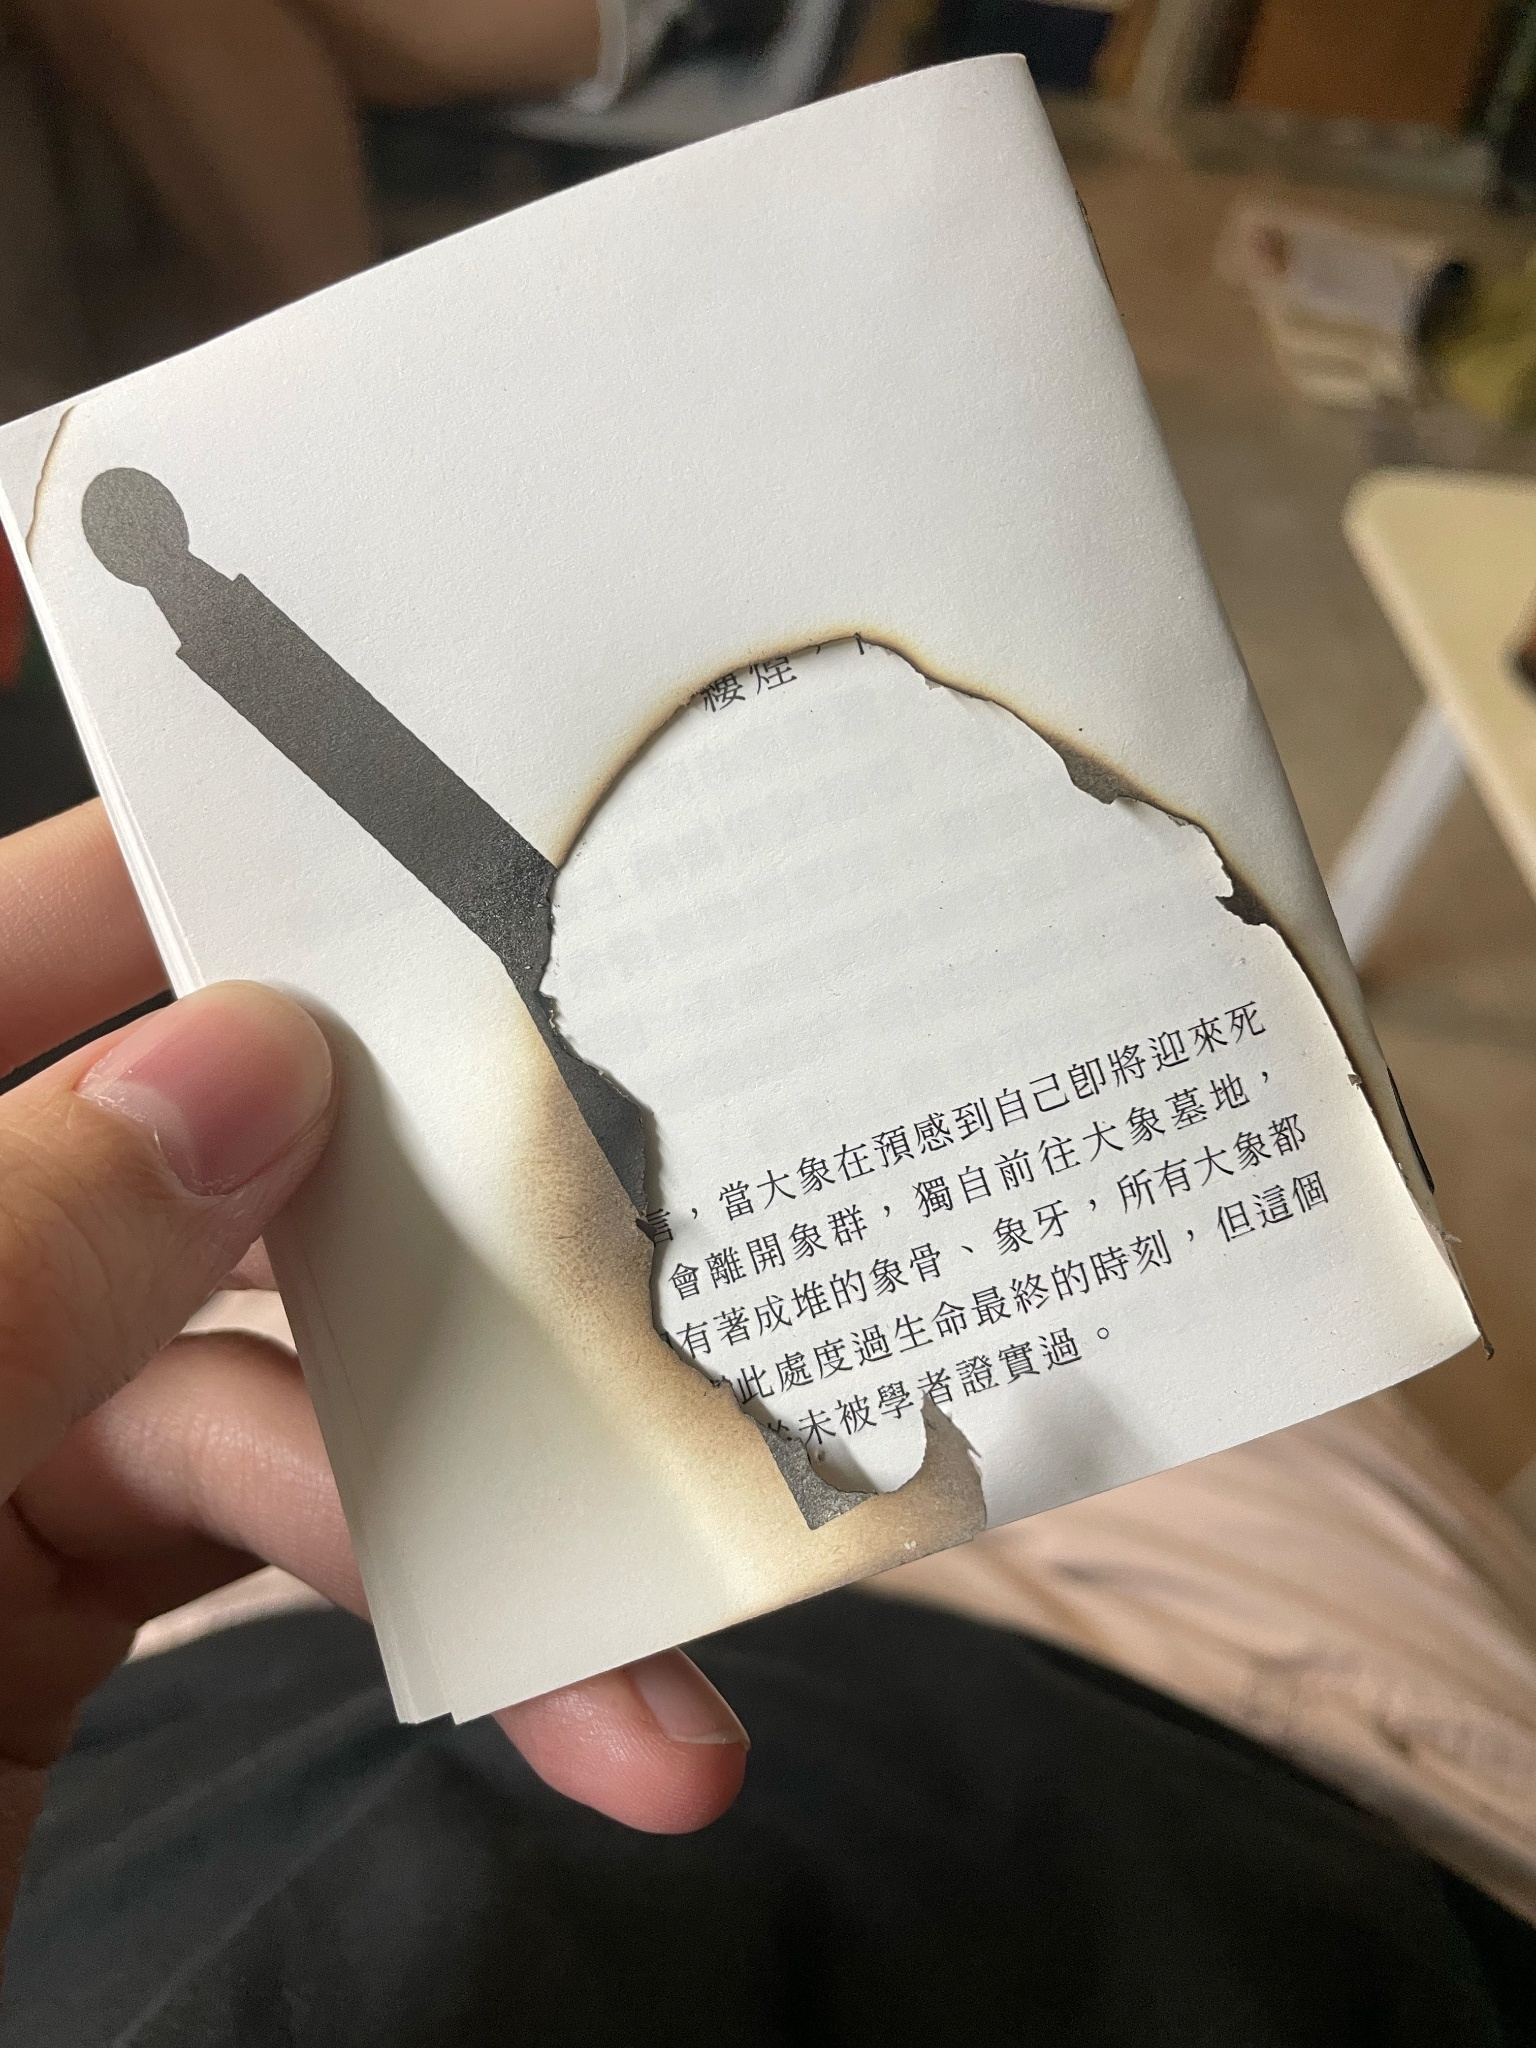 縷煙，
言，當大象在預感到自己即將迎來死
會離開象群，獨自前往大象墓地，
有著成堆的象骨、象牙，所有大象都
此處度過生命最終的時刻，但這個
未被學者證實過。